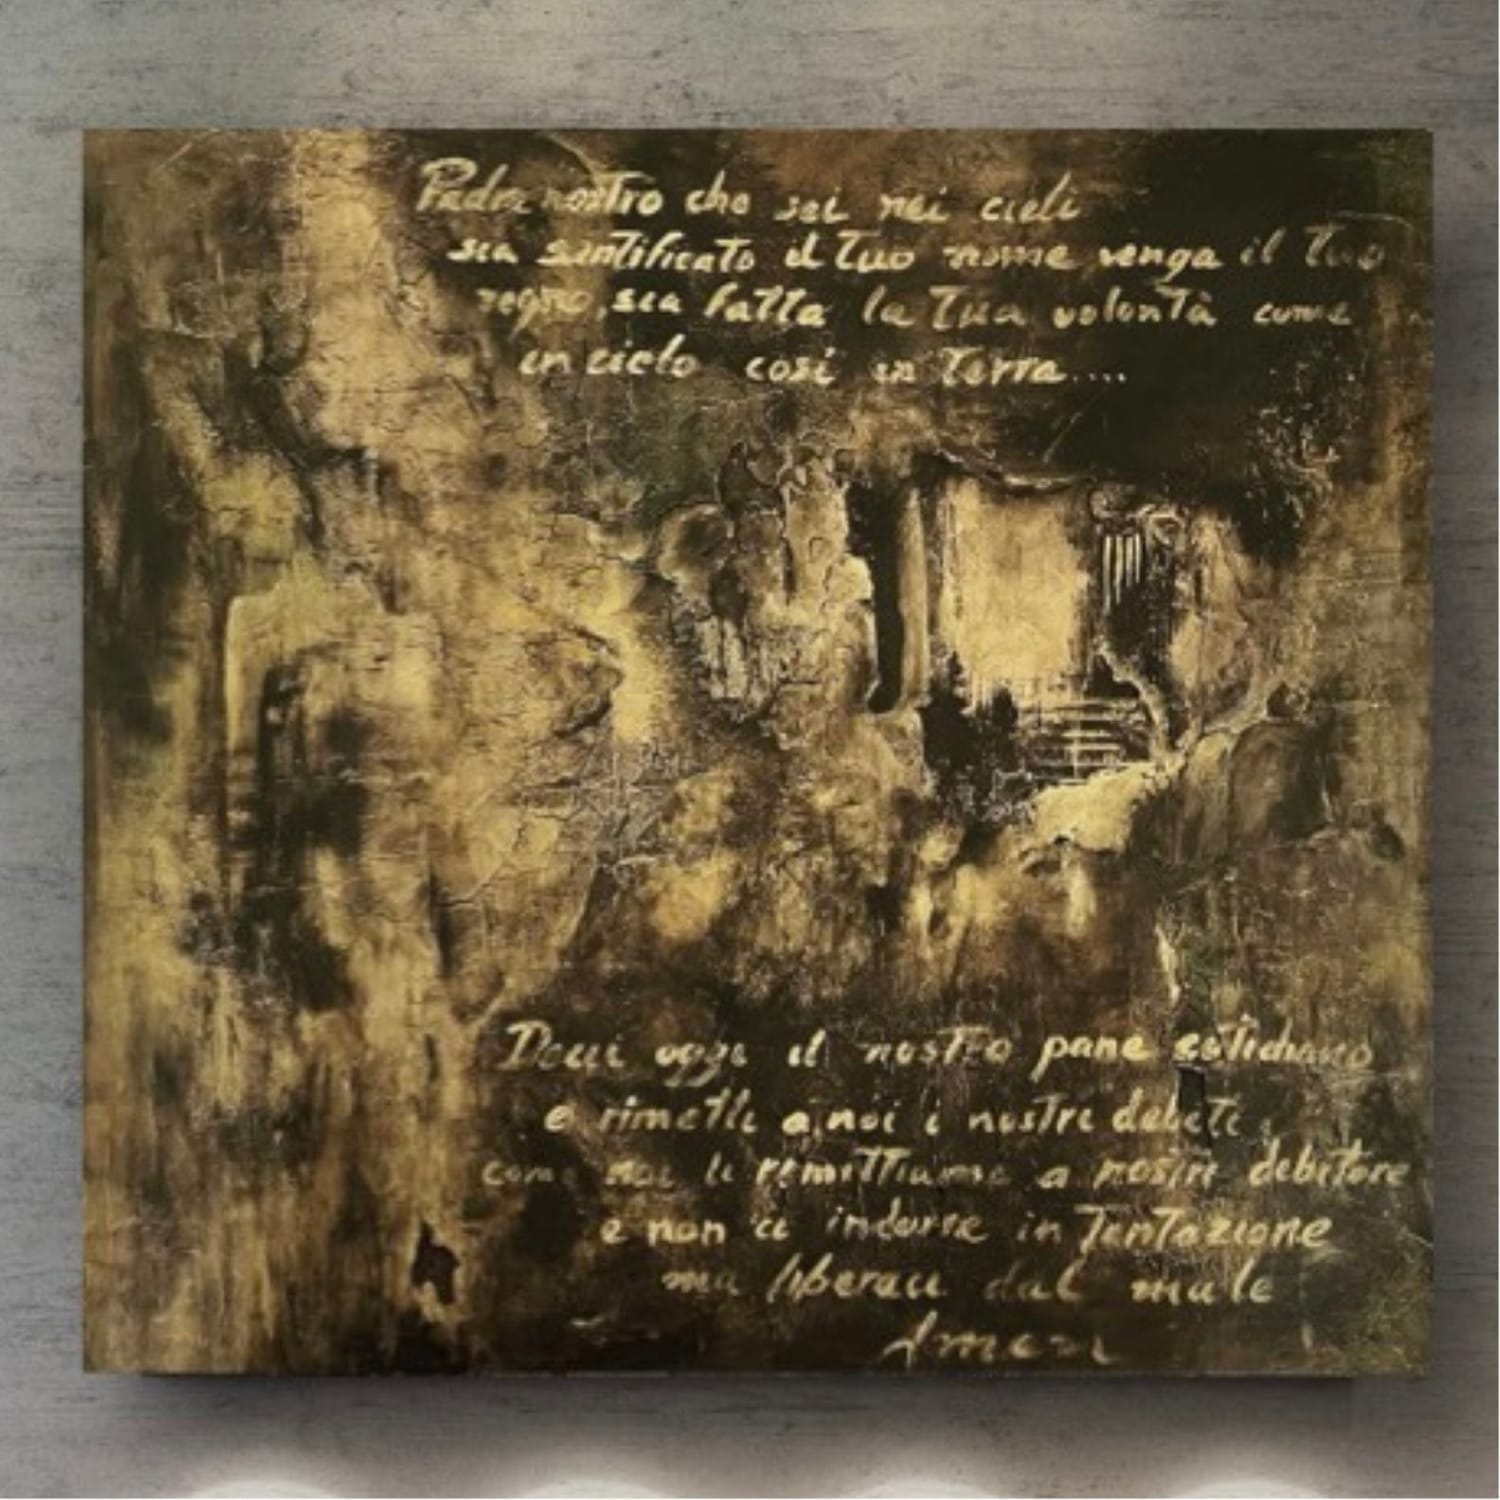 Padre nostro che sei nei cieli
sia santificato il tuo nome venga il tuo
regno, sia fatta la tua volontà come
in cielo così in terra....
Dacci oggi il nostro pane cotidiano
e rimetti a noi i nostri debiti
come noi li rimettiamo a nostri debitore
e non ci indurre in tentazione
ma liberaci dal male
Amen